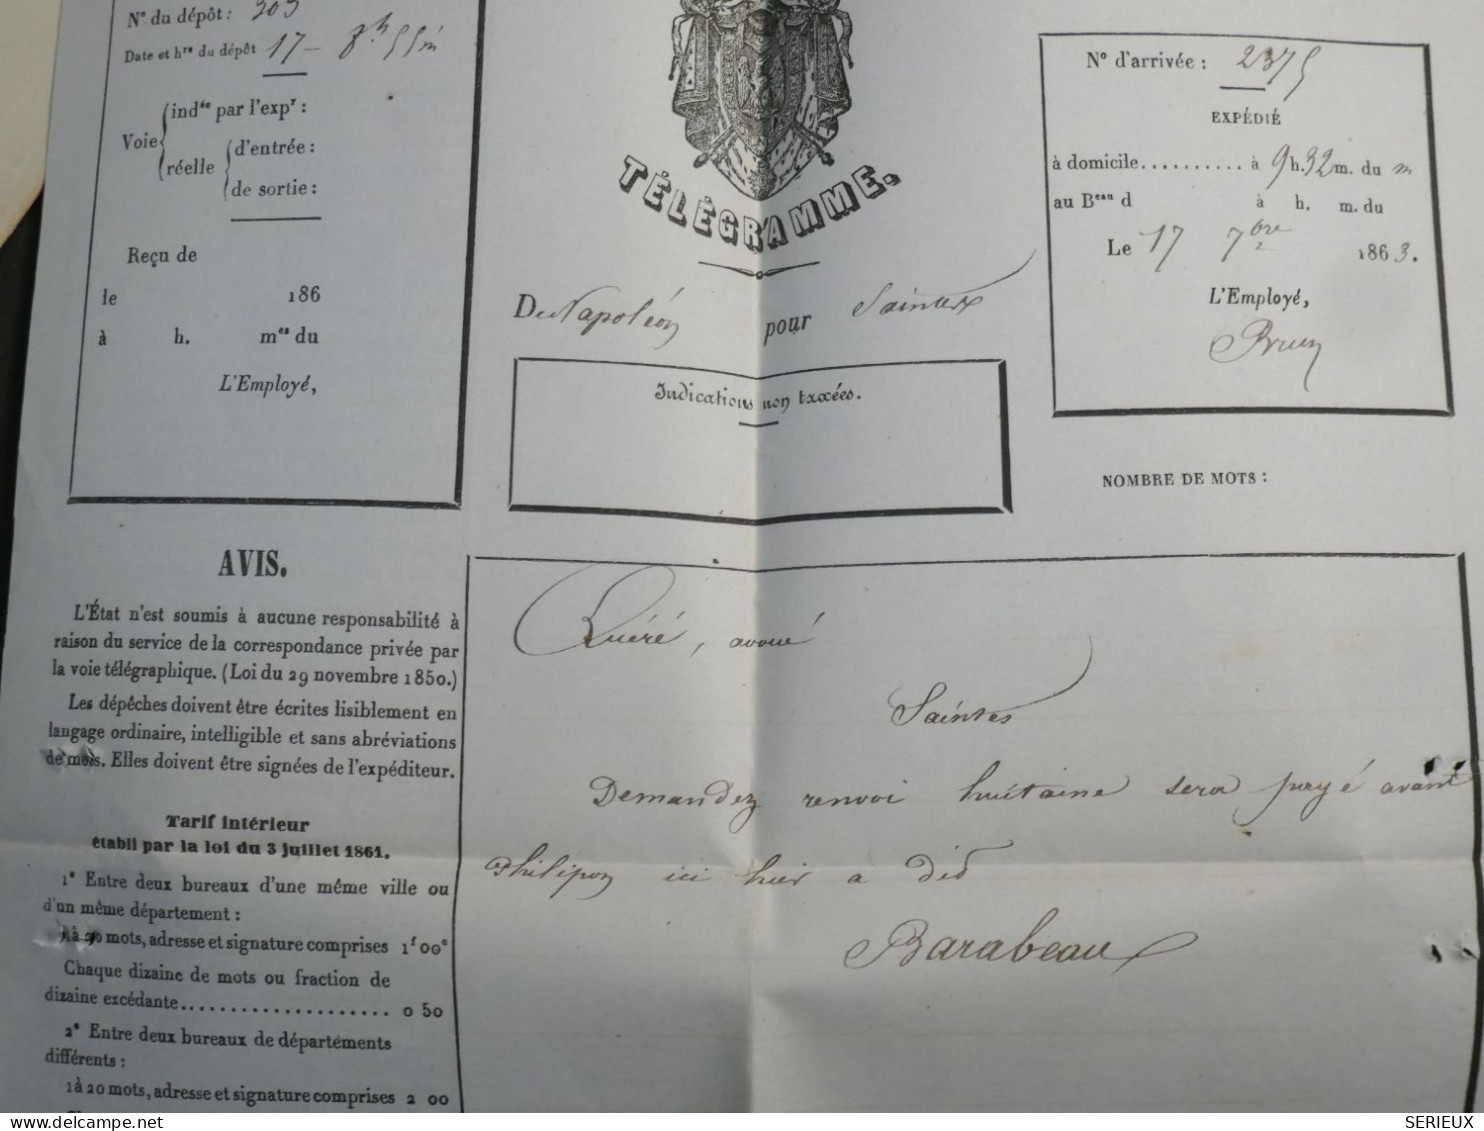 N° du dépôt: 303
Date et hre du dépôt 17 - 8h 55m
Voie
indée par l'expr:
réelle
d'entrée:
de sortie:
Reçu de
le 186
à h. mes du
L'Employé,
TÉLÉGRAMME.
De Napoléon pour Saintes
Indications non taxées.
N° d'arrivée: 2375
EXPÉDIÉ
à domicile.......... à 9 h. 32 m. du m
au Beau d à h. m. du
Le 17 7bre 1863.
L'Employé,
NOMBRE DE MOTS:
AVIS.
L'État n'est soumis à aucune responsabilité à
raison du service de la correspondance privée par
la voie télégraphique. (Loi du 29 novembre 1850.)
Les dépêches doivent être écrites lisiblement en
langage ordinaire, intelligible et sans abréviations
de mots. Elles doivent être signées de l'expéditeur.
Tarif intérieur
établi par la loi du 3 juillet 1861.
1° Entre deux bureaux d'une même ville ou
d'un même département:
1 à 20 mots, adresse et signature comprises 1f 00c
Chaque dizaine de mots ou fraction de
dizaine excédante.................... 0 50
2° Entre deux bureaux de départements
différents:
1 à 20 mots, adresse et signature comprises 2 00
Quéré, avoué
Saintes
Demandez renvoi huitaine sera payé avant
Philipon ici hier a dit
Barabeau
delcampe.net
SERIEUX